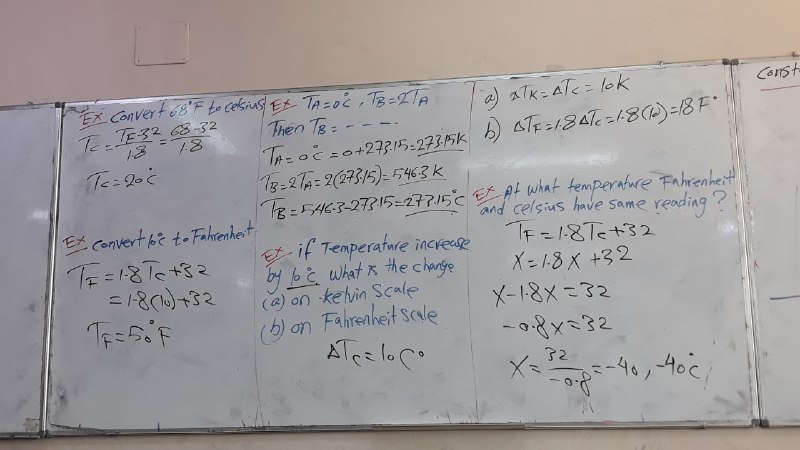 Ex convert 68°F to celsius
Tc = TF-32/1.8 = 68-32/1.8
Tc = 20°c
Ex convert 10°c to Fahrenheit
TF = 1.8Tc+32
= 1.8(10)+32
TF = 50°F
Ex TA=0°c, TB=2TA
Then TB = - - - -
TA = 0°c = 0+273.15 = 273.15K
TB = 2TA = 2(273.15) = 546.3K
TB = 546.3-273.15 = 273.15°C
Ex if Temperature increase
by 10°c what is the change
(a) on kelvin Scale
(b) on Fahrenheit Scale
ΔTc = 10C°
a) ΔTK = ΔTc = 10K
b) ΔTF = 1.8ΔTc = 1.8(10) = 18F°
Ex At what temperature Fahrenheit
and celsius have same reading?
TF = 1.8Tc+32
X = 1.8X+32
X-1.8X = 32
-0.8X = 32
X = 32/-0.8 = -40, -40°c